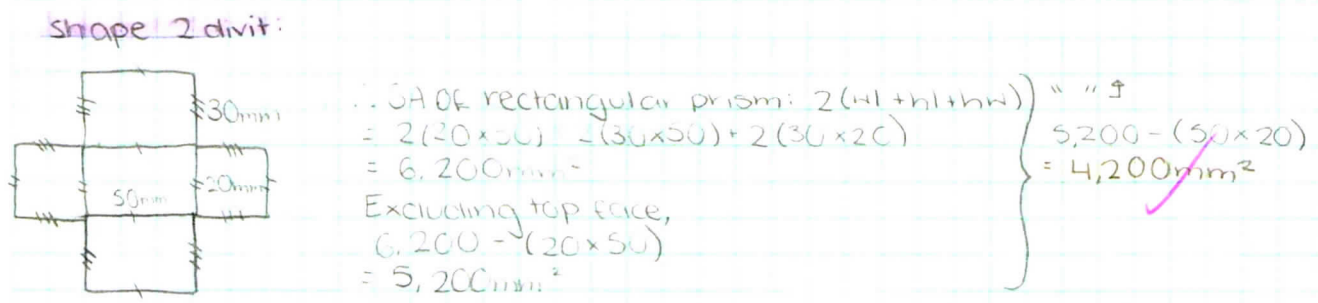 Shape 2 divit:
30mm
20mm
50mm
∴ SA OF rectangular prism: 2(wl + hl + hw)
= 2(20×50) 2(30×50) + 2(30×20)
= 6,200mm²
Excluding top face,
6,200 - (20×50)
= 5,200mm²
" "
5,200 - (50×20)
= 4,200mm²